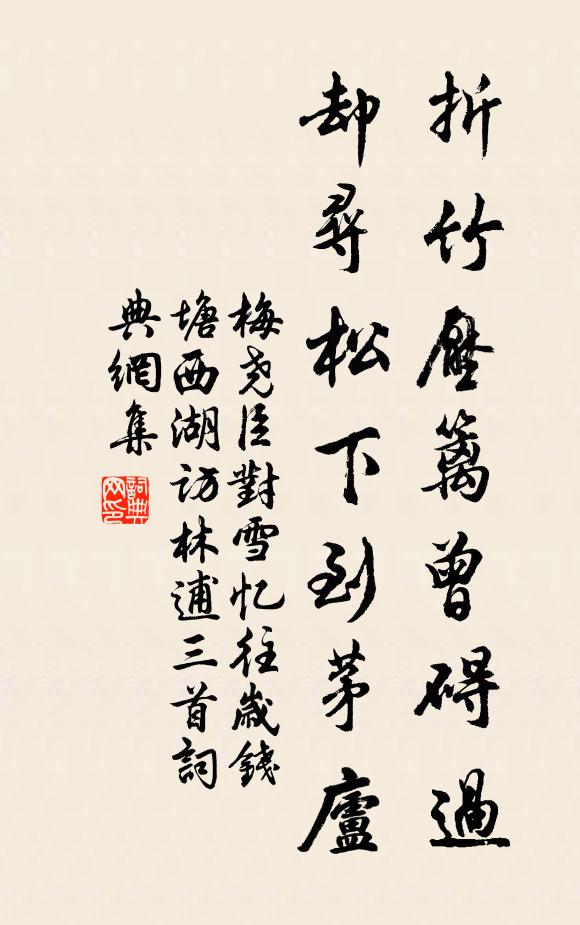 折竹壓篱曾碍過
却尋松下到茅廬
梅堯臣對雪忆往歲錢
塘西湖訪林逋三首詞
典網集
詞典网印